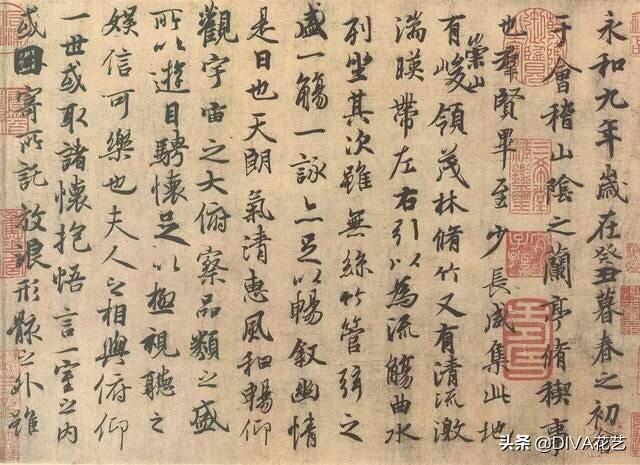 永和九年歲在癸丑暮春之初會
于會稽山陰之蘭亭脩稧事
也羣賢畢至少長咸集此地
有崇山峻領茂林脩竹又有清流激
湍暎帶左右引以為流觴曲水
列坐其次雖無絲竹管弦之
盛一觴一詠亦足以暢敘幽情
是日也天朗氣清惠風和暢仰
觀宇宙之大俯察品類之盛
所以遊目騁懷足以極視聽之
娛信可樂也夫人之相與俯仰
一世或取諸懷抱悟言一室之內
或因寄所託放浪形骸之外雖
头条 @DIVA花艺